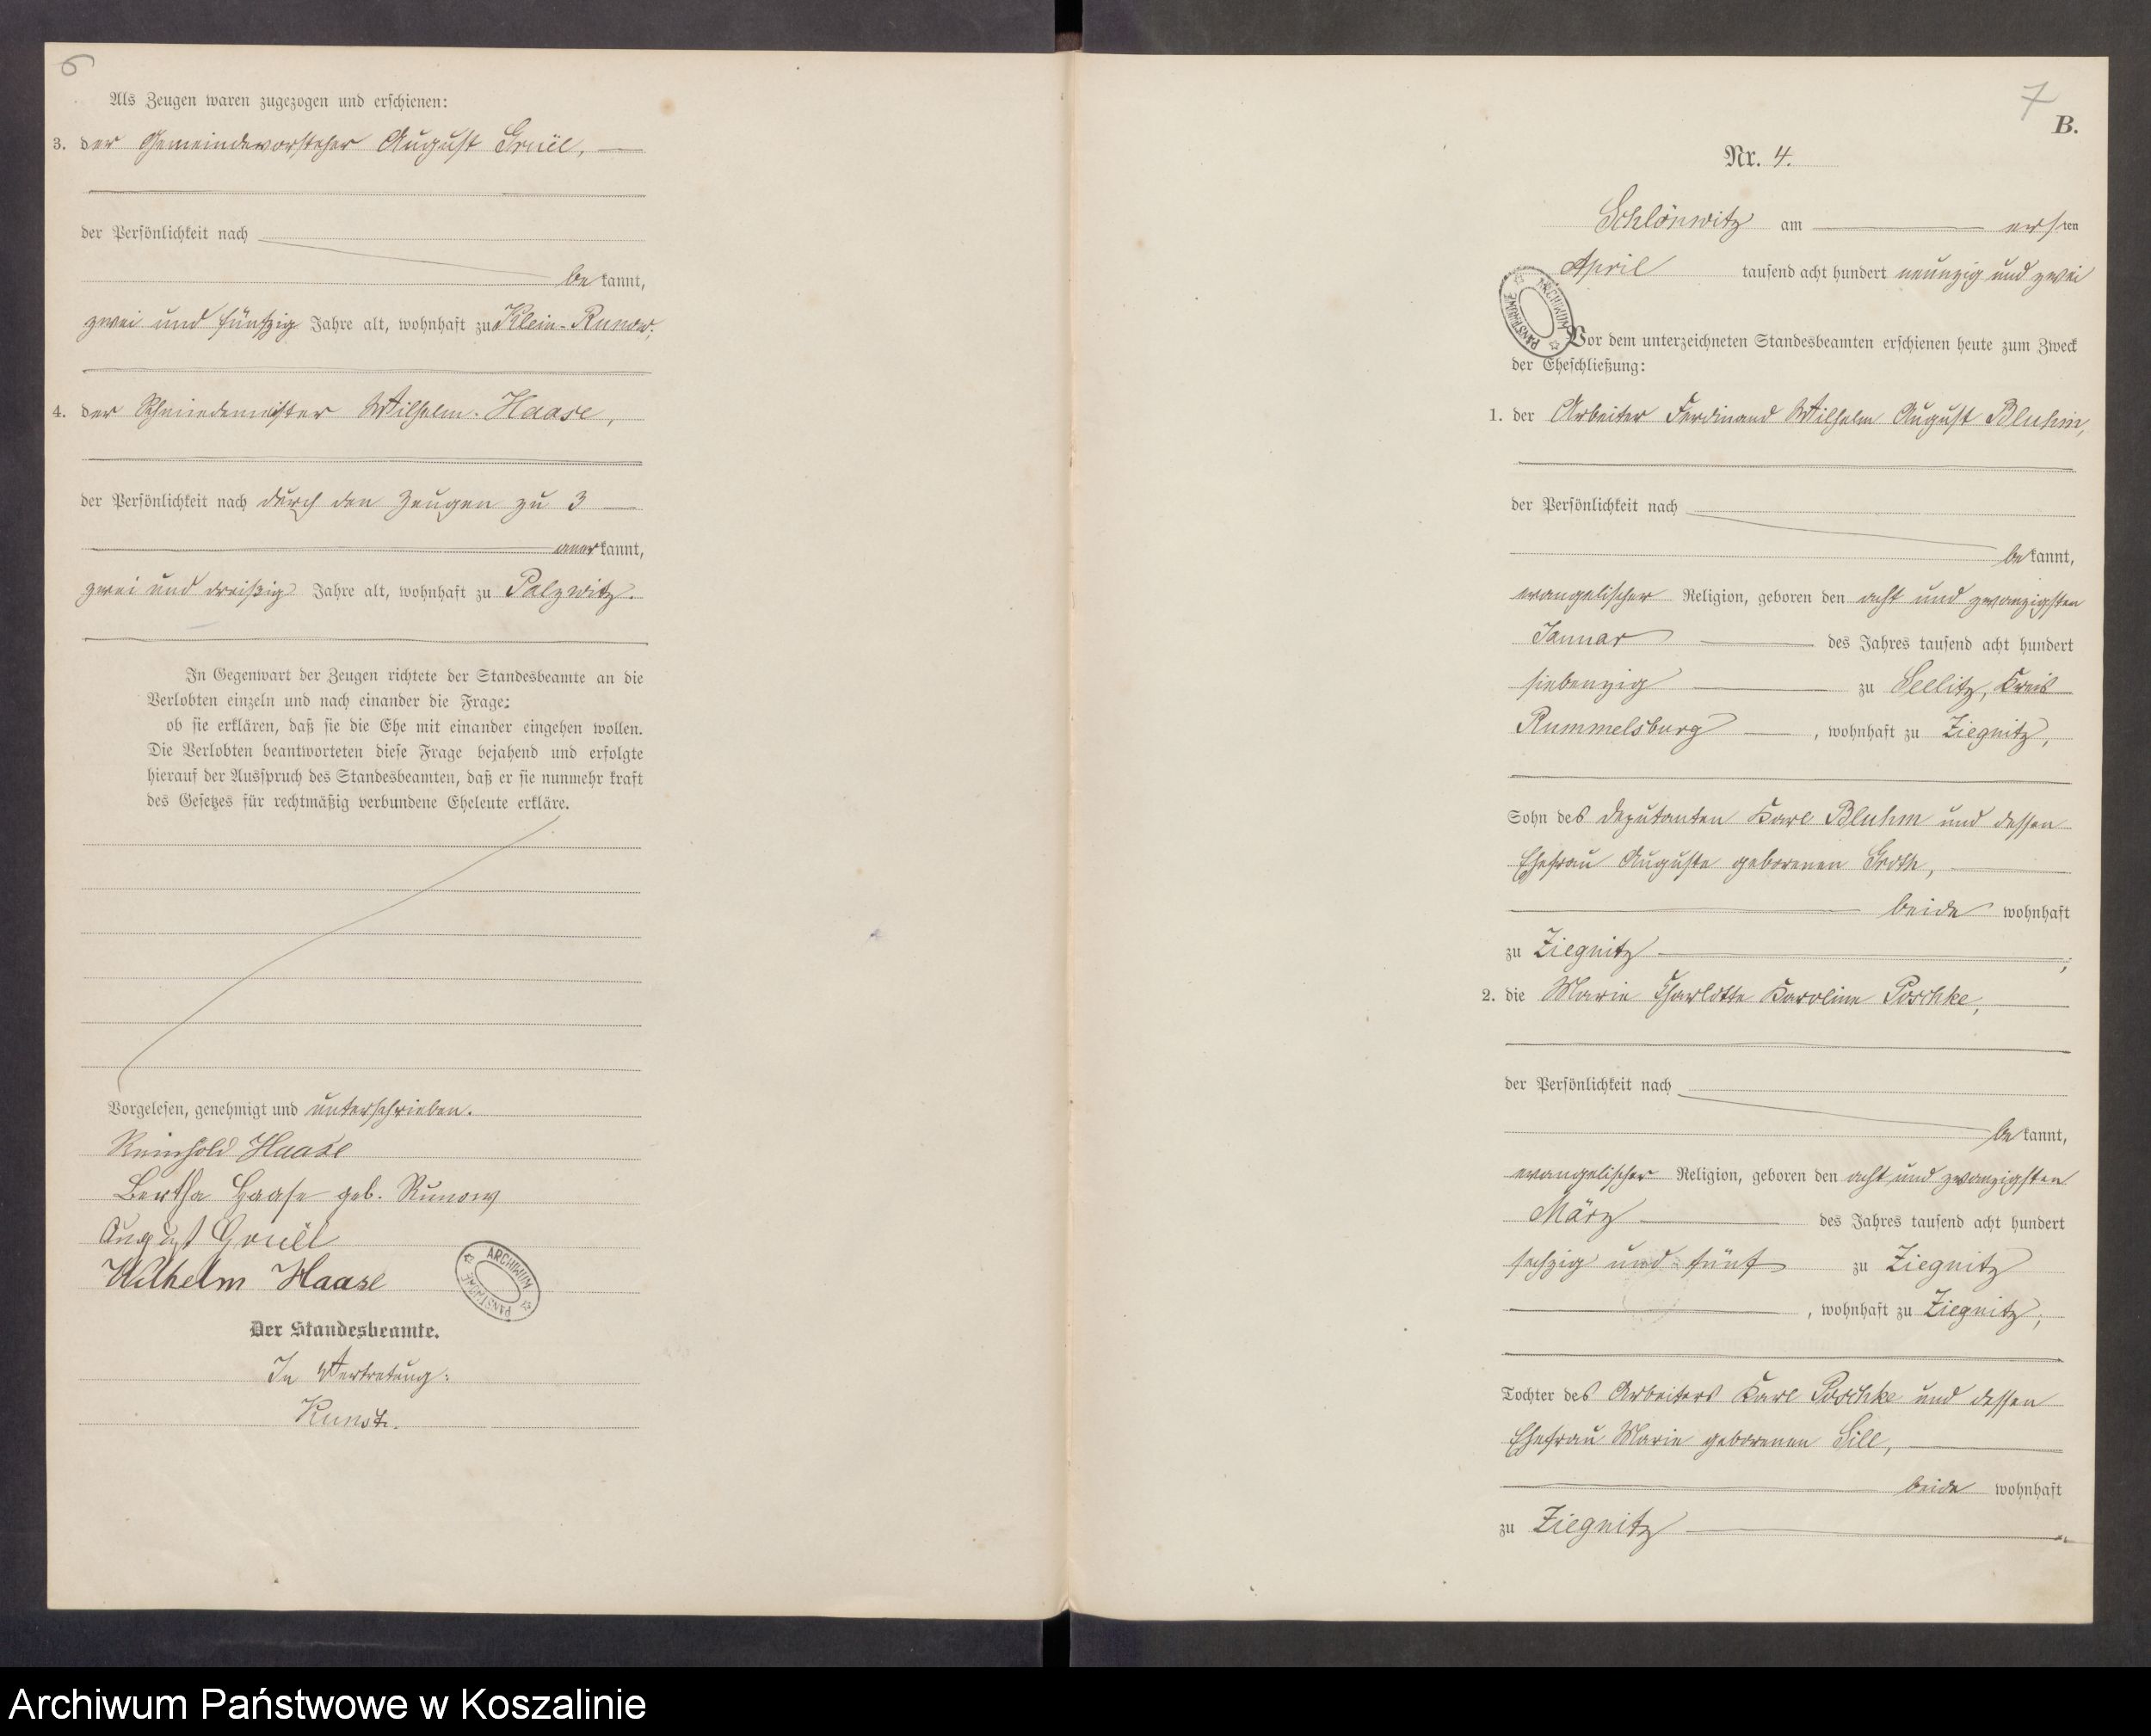 6
Als Zeugen waren zugezogen und erschienen:
3. der Gemeindevorsteher August Gruël,
der Persönlichkeit nach
bekannt,
zwei und fünfzig Jahre alt, wohnhaft zu Klein-Runow;
4. der Schmiedemeister Wilhelm Haase,
der Persönlichkeit nach durch den Zeugen zu 3
anerkannt,
zwei und dreißig Jahre alt, wohnhaft zu Palzwitz.
In Gegenwart der Zeugen richtete der Standesbeamte an die
Verlobten einzeln und nach einander die Frage:
ob sie erklären, daß sie die Ehe mit einander eingehen wollen.
Die Verlobten beantworteten diese Frage bejahend und erfolgte
hierauf der Ausspruch des Standesbeamten, daß er sie nunmehr kraft
des Gesetzes für rechtmäßig verbundene Eheleute erkläre.
Vorgelesen, genehmigt und unterschrieben.
Reinhold Haase
Bertha Haase geb. Runow
August Gruël
Wilhelm Haase
ARCHIWUM PAŃSTWOWE
Der Standesbeamte.
In Vertretung:
7
B.
Nr. 4.
Schlönwitz am ersten
April tausend acht hundert neunzig und zwei
ARCHIWUM PAŃSTWOWE
Vor dem unterzeichneten Standesbeamten erschienen heute zum Zweck
der Eheschließung:
1. der Arbeiter Ferdinand Wilhelm August Bluhm,
der Persönlichkeit nach
bekannt,
evangelischer Religion, geboren den acht und zwanzigsten
Januar des Jahres tausend acht hundert
siebenzig zu Seelitz, Kreis
Rummelsburg, wohnhaft zu Ziegnitz,
Sohn des Deputanten Karl Bluhm und dessen
Ehefrau Auguste geborenen Groth,
beide wohnhaft
zu Ziegnitz;
2. die Marie Charlotte Karoline Poschke,
der Persönlichkeit nach
bekannt,
evangelischer Religion, geboren den acht und zwanzigsten
März des Jahres tausend acht hundert
sechzig und fünf zu Ziegnitz
, wohnhaft zu Ziegnitz,
Tochter des Arbeiters Karl Poschke und dessen
Ehefrau Marie geborenen Sill,
beide wohnhaft
zu Ziegnitz
Archiwum Państwowe w Koszalinie